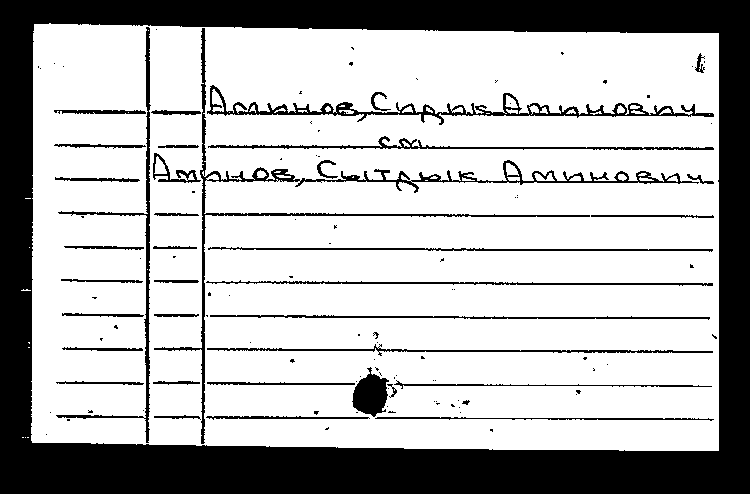 Аминов, Сидик Аминович
см.
Аминов, Сытдык Аминович